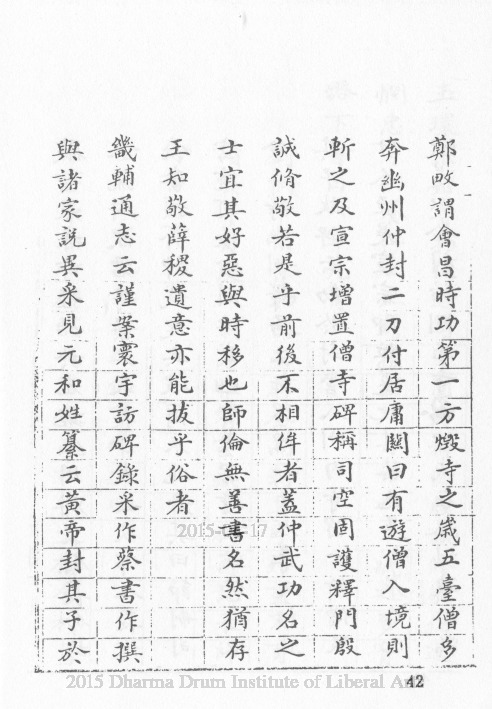 鄭畋謂會昌時功第一方燬寺之歲五臺僧多
奔幽州仲封二刀付居庸關曰有遊僧入境則
斬之及宣宗增置僧寺碑稱司空固護釋門殷
誠脩敬若是乎前後不相侔者蓋仲武功名之
士宜其好惡與時移也師倫無善書名然猶存
王知敬薛稷遺意亦能拔乎俗者
畿輔通志云謹案寰宇訪碑錄采作蔡書作撰
與諸家說異采見元和姓纂云黃帝封其子於
2015 Dharma Drum Institute of Liberal Ar
42